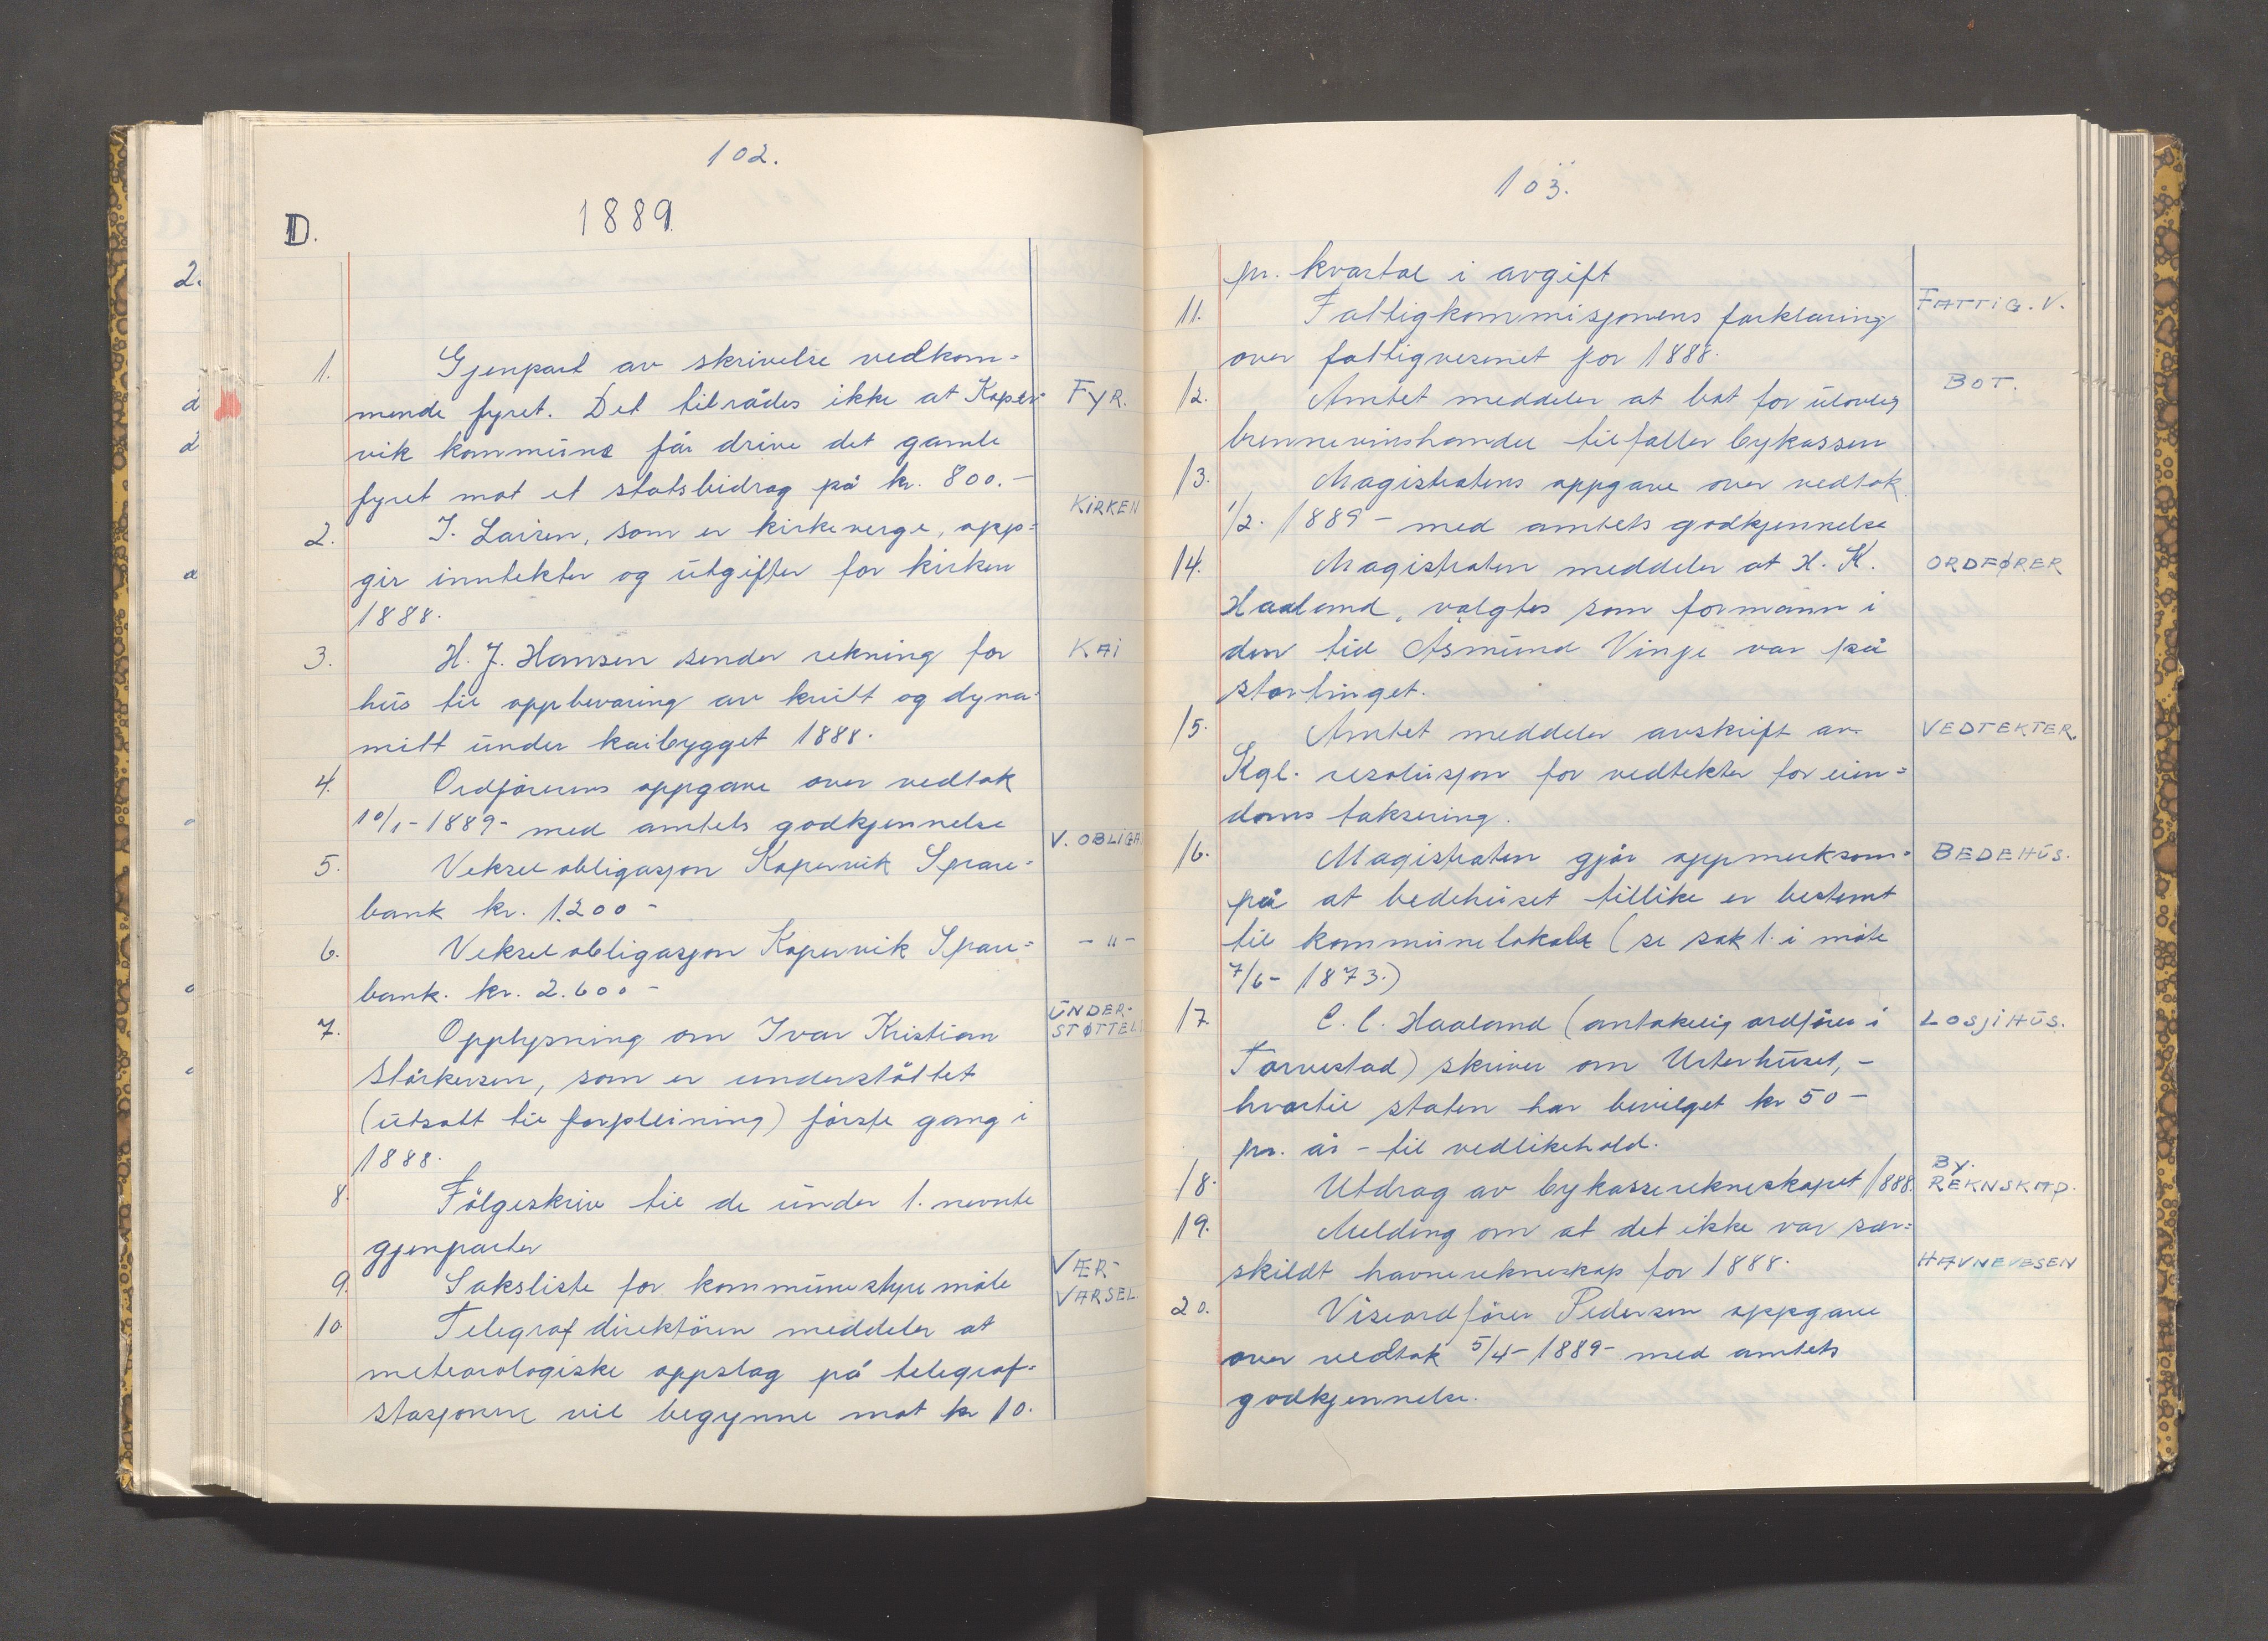 102.
1889.
D.
1. Gjenpart av skrivelse vedkom=
mende fyret. Det tilrådes ikke at Koper= FYR.
vik kommune får drive det gamle
fyret mot et statsbidrag på kr. 800.-
KIRKEN
2. J. Larsen, som er kirkeverge, opp=
gir inntekter og utgifter for kirken
1888.
3. H. J. Hansen sender rekning for KAI
hus til oppbevaring av krutt og dyna=
mitt under kaibygget 1888.
4. Ordförerens oppgave over vedtak
10/1-1889- med amtets godkjennelse
V. OBLIGA
5. Vekselobligasjon Kopervik Spare=
bank kr. 1.200-
6. Vekselobligasjon Kopervik Spare= - " -
bank. kr. 2.600-
UNDER-
7. Opplysning om Ivar Kristian STØTTEL
Störkersen, som er understöttet
(utsatt til forpleining) förste gang i
1888.
8. Fölgeskriv til de under 1. nevnte
gjenparter
VÆR-
9. Saksliste for kommunestyremöte VARSEL.
10. Telegrafdirektören meddeler at
meteorologiske oppslag på telegraf=
stasjonene vil begynne mot kr 10.
103.
pr. kvartal i avgift
11. Fattigkommisjonens forklaring FATTIG. V.
over fattigvesenet for 1888.
12. Amtet meddeler at bot for ulovleg BOT.
brennevinshandel tilfaller bykassen
13. Magistratens oppgave over vedtak
1/2. 1889- med amtets godkjennelse
14. Magistraten meddeler at H. K. ORDFØRER
Haaland, valgtes som formann i
den tid Åsmund Vinje var på
stortinget.
15. Amtet meddeler avskrift av VEDTEKTER.
Kgl. resolusjon for vedtekter for eien=
doms taksering.
16. Magistraten gjör oppmerksom= BEDEHUS.
på at bedehuset tillike er bestemt
til kommunelokale (se sak 1. i möte
7/6- 1873.)
17. C. C. Haaland (antakelig ordförer i LOSJIHUS.
Torvestad) skriver om Urterhuset,-
hvortil staten har bevilget kr 50-
pr. år - til vedlikehold.
BY.
18. Utdrag av bykasserekneskapet 1888. REKNSKAP.
19. Melding om at det ikke var sær=
skildt havnerekneskap for 1888. HAVNEVESEN
20. Viseordförer Pedersen oppgave
over vedtak 5/4-1889- med amtets
godkjennelse.